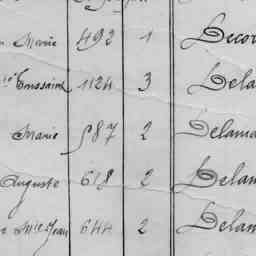 Marie 493 1 Lecou
Toussaint 1124 3 Lela
Marie 587 2 Delama
Auguste 618 2 Delam
Mie Jean 644 2 Delam